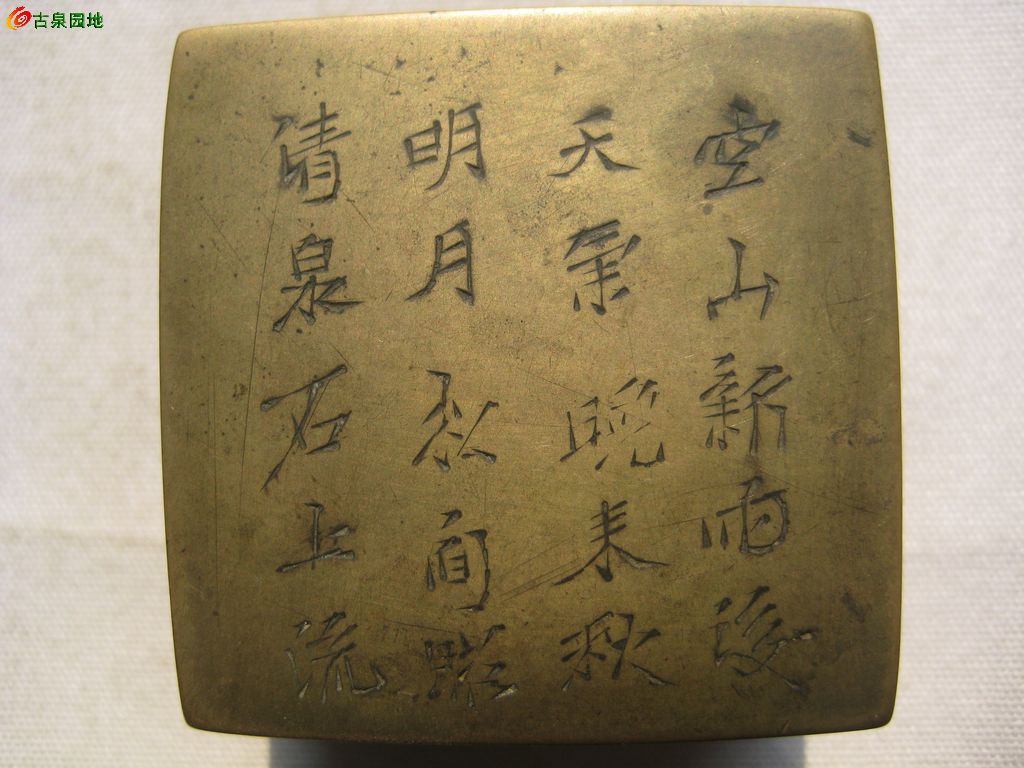 古泉园地
空山新雨後
天氣晚来秋
明月松间照
清泉石上流